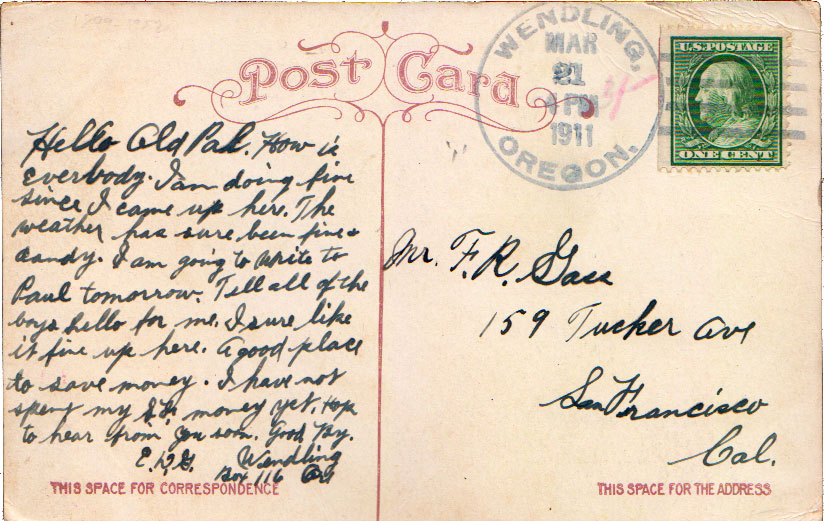 Post Card
WENDLING,
MAR
21
4 PM
1911
OREGON.
U.S. POSTAGE
ONE CENT
Hello Old Pal. How is
everbody. I am doing fine
since I came up here. The
weather has sure been fine &
dandy. I am going to write to
Paul tomorrow. Tell all of the
boys hello for me. I sure like
it fine up here. A good place
to save money. I have not
spent my S.F. money yet. Hope
to hear from you soon. Good By.
Wendling
Box 116 Ore
Mr. F.R. Gass
159 Tucker Ave
San Francisco
Cal.
THIS SPACE FOR CORRESPONDENCE
THIS SPACE FOR THE ADDRESS